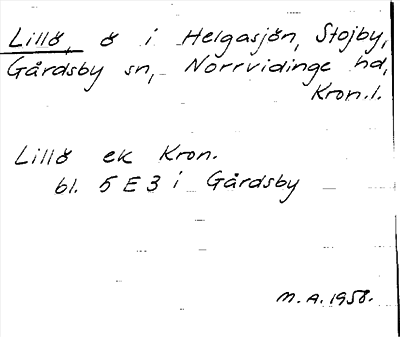 Lillö, ö i Helgasjön, Stojby,
Gårdsby sn, Norrvidinge hd,
Kron.l.
Lillö ek Kron.
bl. 5 E 3 i Gårdsby
M.A. 1958.